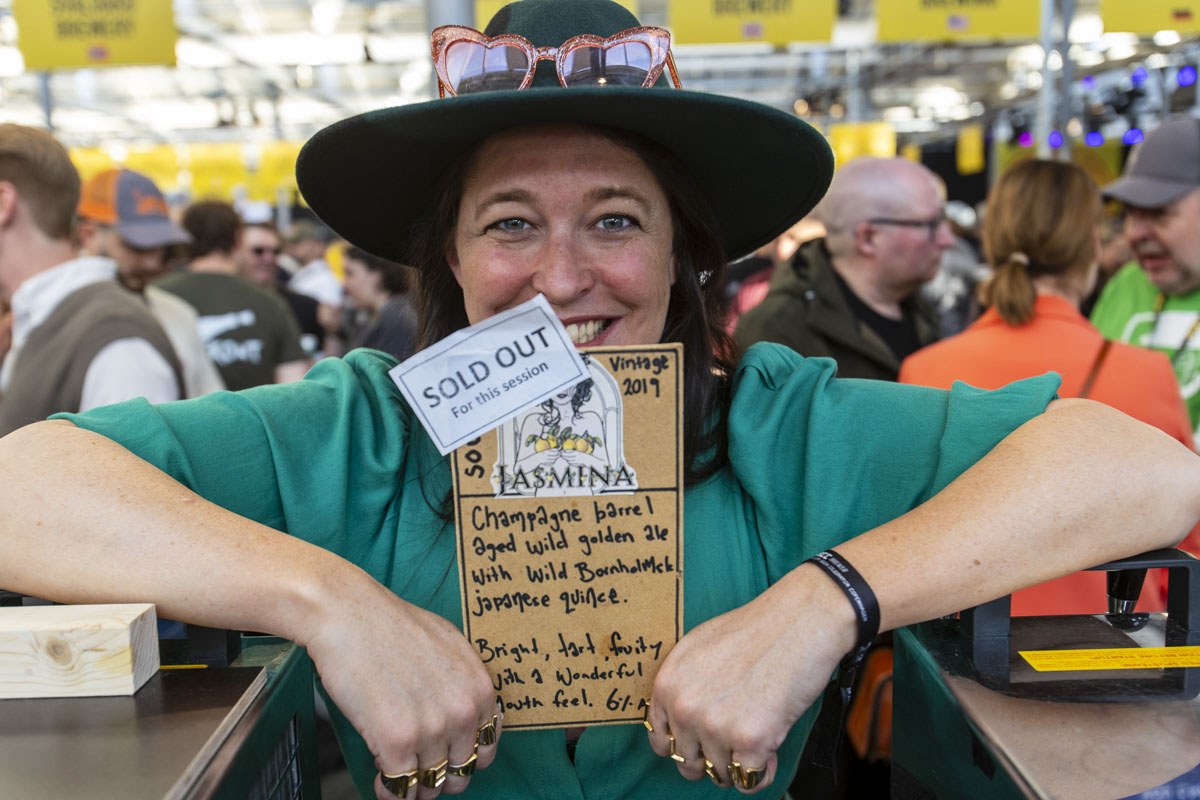 BREWERY
BREWERY
SOLD OUT
For this session
Vintage
2019
IASMINA
Champagne barrel
aged wild golden ale
with wild Bornholmsk
japanese quince.
Bright, tart, fruity
with a wonderful
mouth feel. 6%